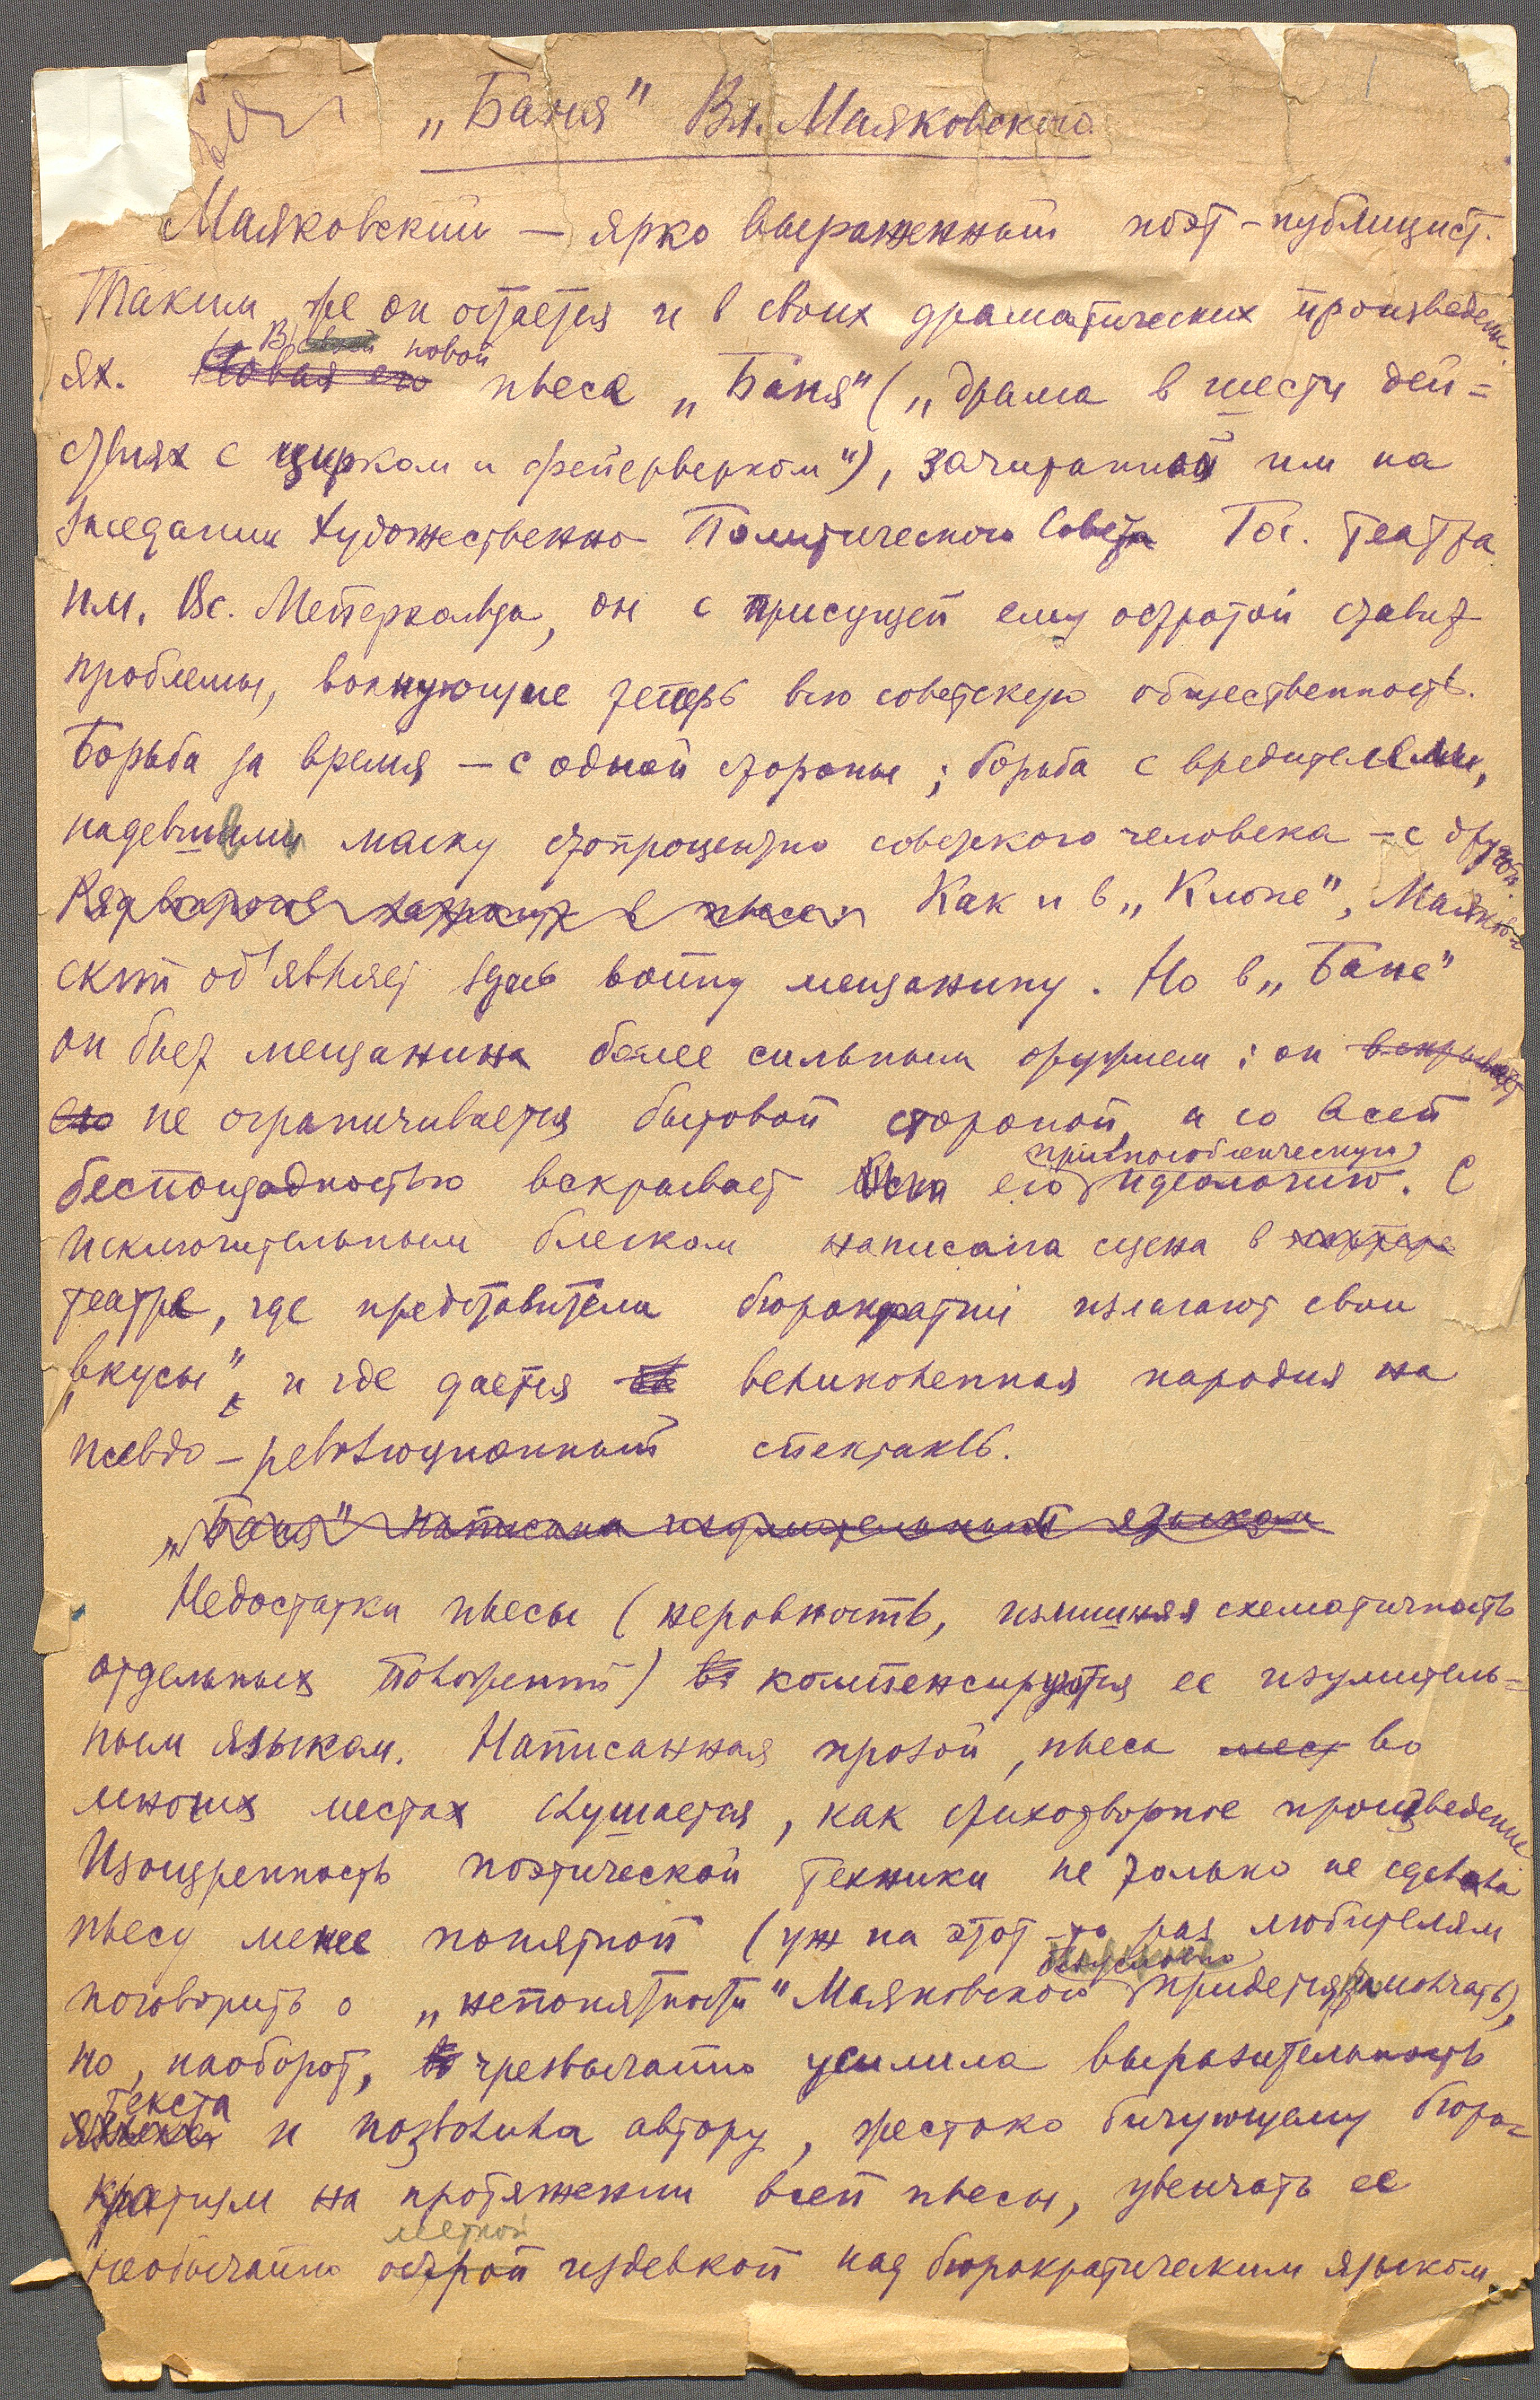 „Баня" Вл. Маяковского
Маяковский — ярко выраженный поэт-публицист.
Таким же он остается и в своих драматических произведени-
ях. Новая его В своей новой пьесе „Баня" („драма в шести дей=
ствиях с цирком и фейерверком"), зачитанной им на
заседании Художественно-Политического Совета Гос. театра
им. Вс. Мейерхольда, он с присущей ему остротой ставит
проблемы, волнующие теперь всю советскую общественность.
Борьба за время — с одной стороны; борьба с вредителями,
надевшими маску стопроцентно советского человека — с другой.
Как и в „Клопе", Маяков-
ский об'являет здесь войну мещанину. Но в „Бане"
он бьет мещанина более сильным оружием: он вскрывает
его не ограничивается бытовой стороной, а со всей
беспощадностью вскрывает всю его приспособленческую идеологию. С
исключительным блеском написана сцена в театре
театре, где представители бюрократии излагают свои
„вкусы", и где дается великолепная пародия на
псевдо-революционный спектакль.
„Баня" написана изумительным языком
Недостатки пьесы (неровность, излишняя схематичность
отдельных положений) компенсируются ее изумитель=
ным языком. Написанная прозой, пьеса мест во
многих местах слушается, как стихотворное произведение
Изощренность поэтической техники не только не сделала
пьесу менее понятной (уж на этот-то раз любителям
поговорить о „непонятности" Маяковского безусловно придется замолчать),
но, наоборот, чрезвычайно усилила выразительность
языка текста и позволила автору, жестоко бичующему бюро=
кратизм на протяжении всей пьесы, увенчать ее
необычайно острой меткой издевкой над бюрократическим языком.